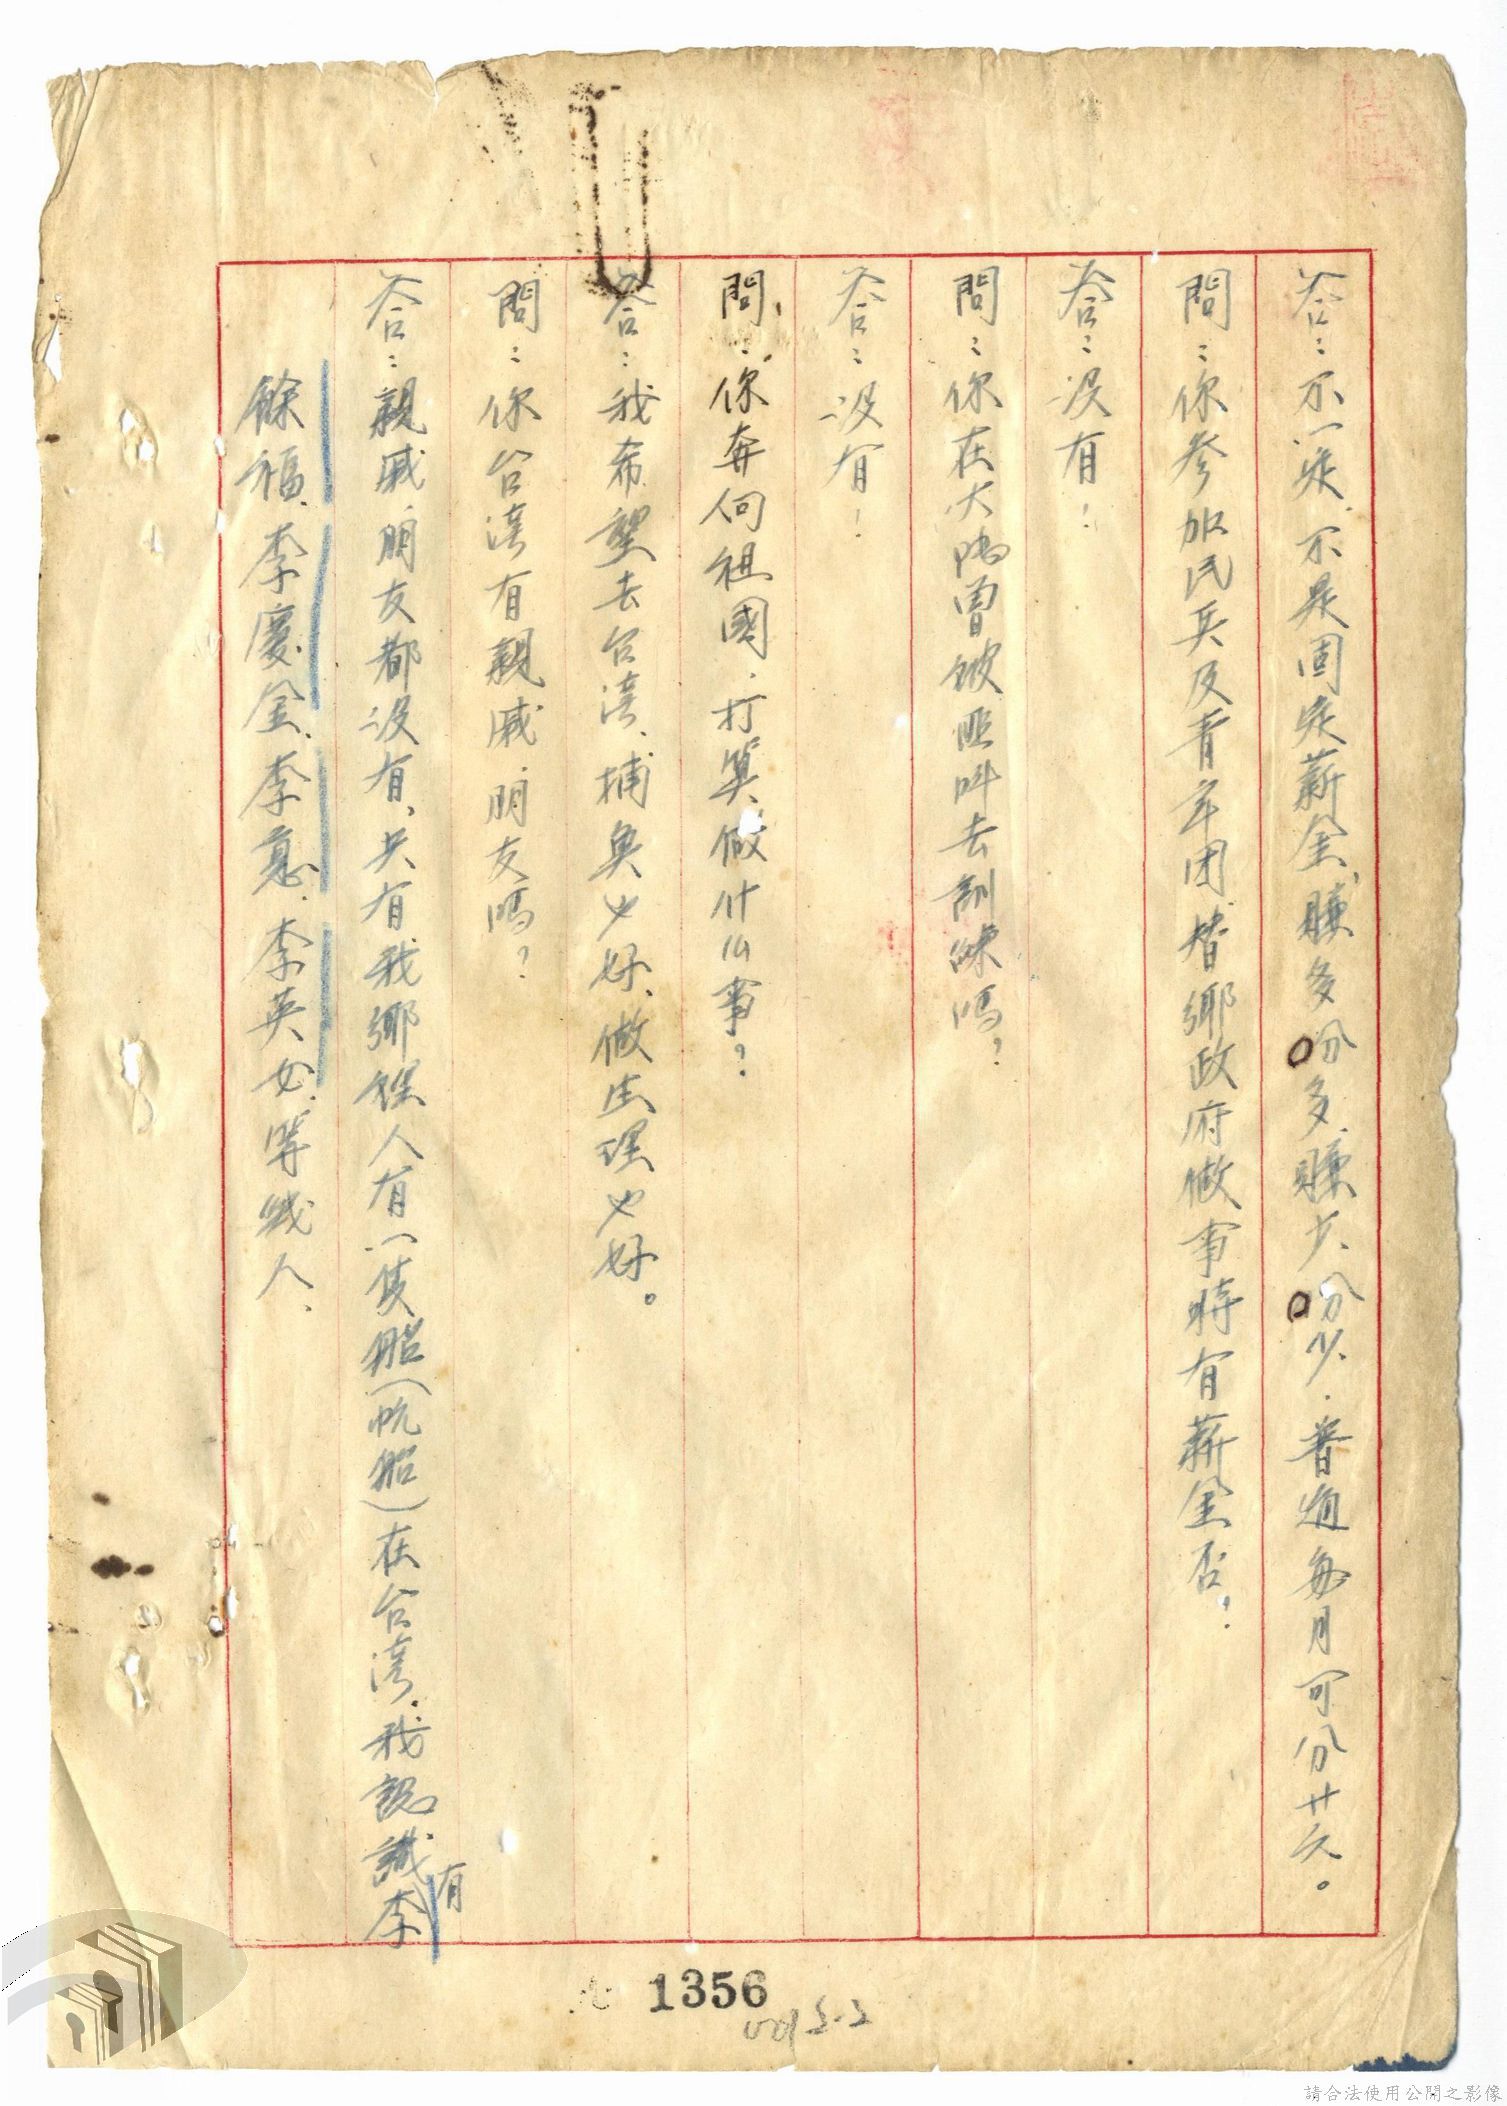 答：不一定，不是固定薪金，賺多分多，賺少分少，普通每月可分廿元。
問：你參加民兵及青年团替鄉政府做事時有薪金否？
答：没有！
問：你在大陸曾被匪叫去訓練嗎？
答：没有！
問：你奔向祖國，打算做什么事？
答：我希望去台湾，捕魚也好，做生理也好。
問：你台湾有親戚朋友嗎？
答：親戚朋友都没有，只有我鄉程人有一隻船（帆船）在台湾，我認識有李
餘福，李慶金，李意，李英女，等幾人，
1356
請合法使用公開之影像